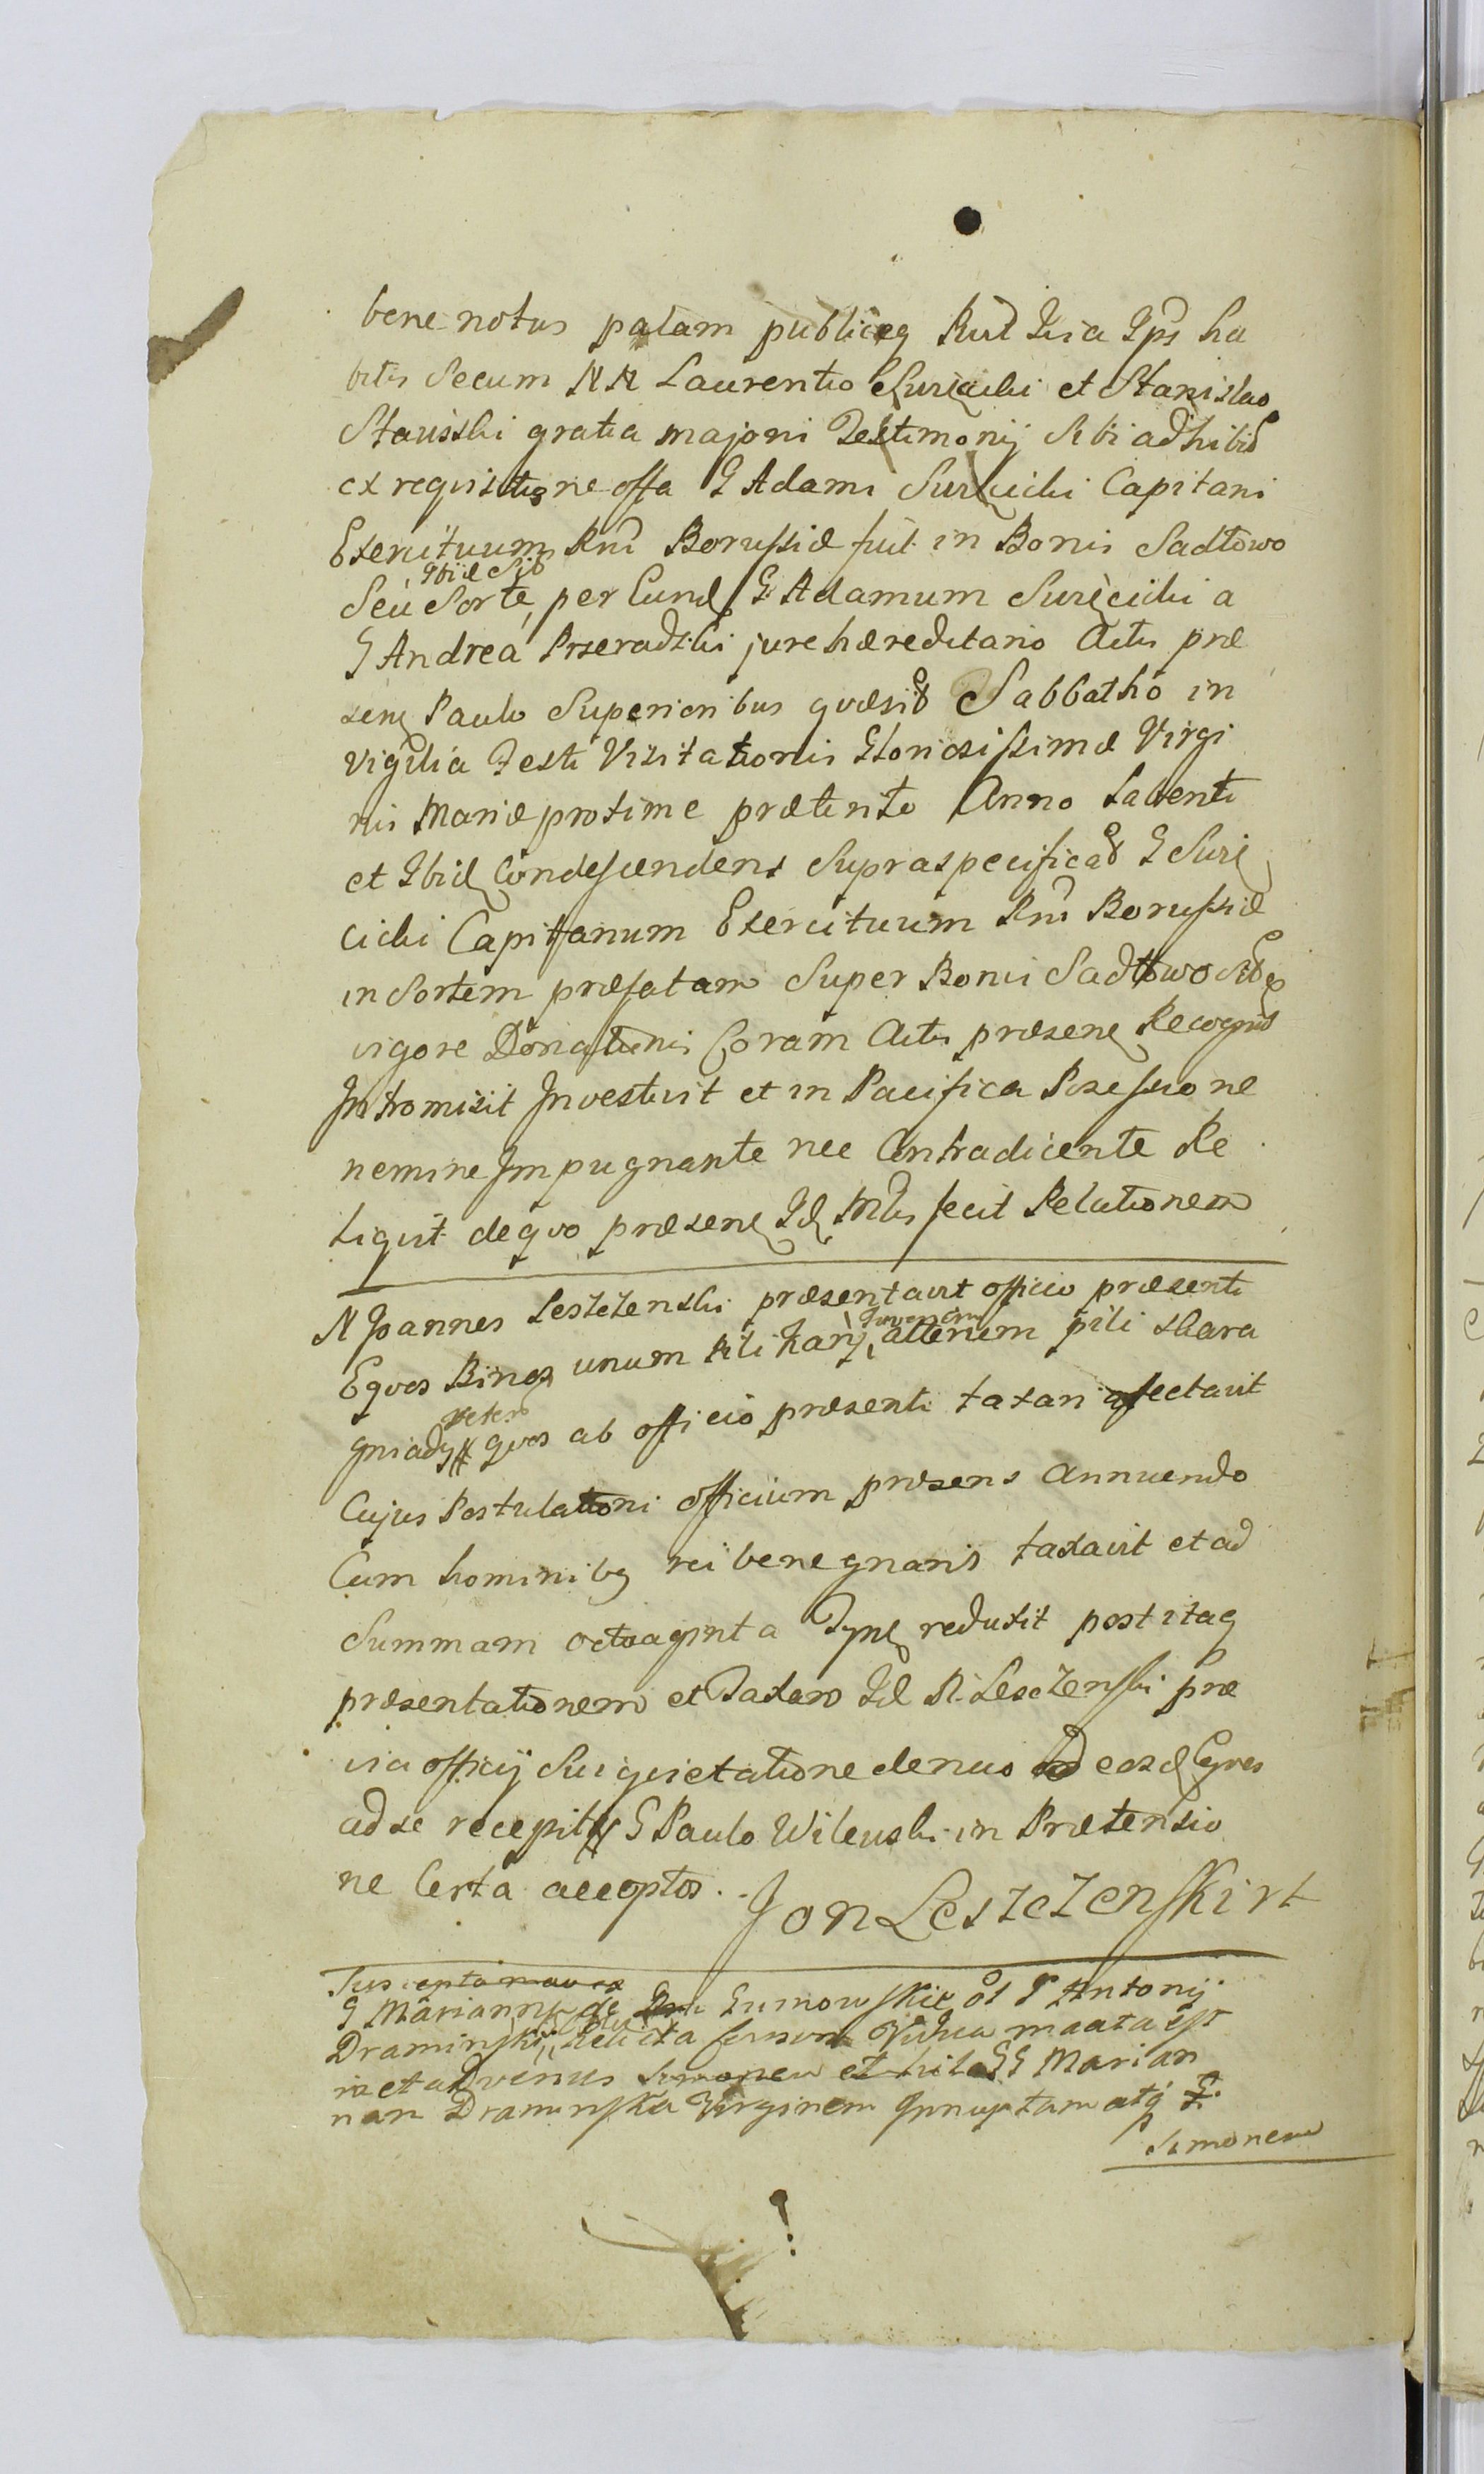 bene notus palam publiceq Rnd Iria Ips ha
bitis Secum NN Laurentio Suriędzki et Stanislao
Stawiski gratia majoris Testimonij Sibi adhibit
ex requisitione offa G Adami Capitani
Exercituum Rni Borussiæ fuit in Bonis Sadłowo
Ibid Sit
Seu Sorte per Eund G Adamum a
G Andrea Przeradzki jure hæreditario Actis præ
sen Paulo Superioribus quæsit Sabbatho in
vigilia Festi Visitationis Gloriosissimæ Virgi
nis Mariæ proxime præterito Anno Labenti
et Ibid Condescendens Supraspecificat G
cicki Capitanum Exercituum Rni Borussiæ
in Sortem præfatam Super Bonis Sadłowo
vigore Donationis Coram Actis præsen Recognit
Intromisit Investivit et in Pacifica Posessione
nemine Impugnante nec Contradicente Re
liquit de quo præsen Id Mtlis fecit Relationem
N Joannes Leszczenski præsentavit officio præsenti
Juvenem
Equos Binos unum pili Kary, alterum pili skaro
veter
gniady quos ab officio præsenti taxari afectavit
Cujus Postulationi officium præsens annuendo
Cum hominibq rei bene gnaris taxavit et ad
Summam octoaginta Tynf reduxit post itaq
præsentationem et Taxam Id N Lesczenski præ
via officij Sui quietatione denuo eosd Eqvos
ad se recepit G Paulo Wilewski in Prætensio
ne Certa acceptos.
Jan Leszczenski
G Marianna de Gumowskie ol G Antonij
Draminski Relicta Vidua
et G Marian
nam Draminska Virginem Innuptam atq G
Simonem